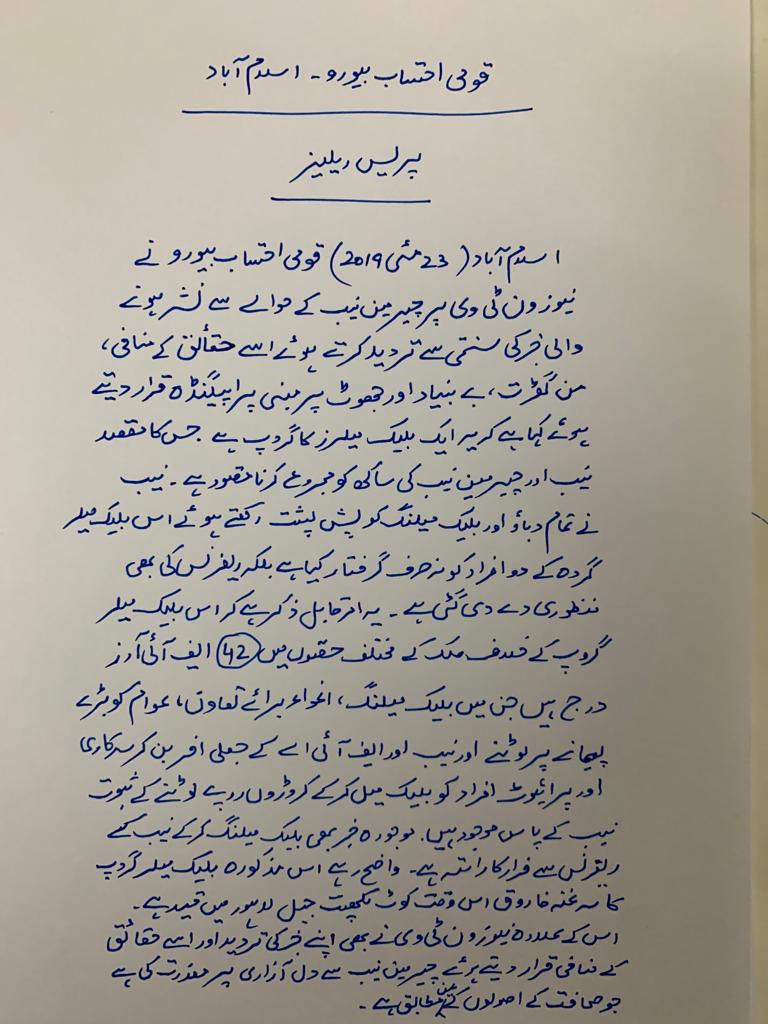 قومی احتساب بیورو - اسلام آباد
پریس ریلیز
اسلام آباد (23 مئی 2019) قومی احتساب بیورو نے
نیوز ون ٹی وی پر چیرمین نیب کے حوالے سے نشر ہونے
والی خبر کی سختی سے تردید کرتے ہوئے اسے حقائق کے منافی،
من گھڑت، بے بنیاد اور جھوٹ پر مبنی پراپیگنڈہ قرار دیتے
ہوئے کہا ہے کہ یہ ایک بلیک میلرز کا گروپ ہے جس کا مقصد
نیب اور چیرمین نیب کی ساکھ کو مجروع کرنا مقصود ہے ۔ نیب
نے تمام دباؤ اور بلیک میلنگ کو پش پشت رکھتے ہوئے اس بلیک میلر
گروہ کے دو افراد کو نہ صرف گرفتار کیا ہے بلکہ ریفرنس کی بھی
منظوری دے دی گئی ہے ۔ یہ امر قابل ذکر ہے کہ اس بلیک میلر
گروپ کے خلاف ملک کے مختلف حصوں میں 42 ایف آئی آرز
درج ہیں جن میں بلیک میلنگ، اغواء برائے تعاون، عوام کو بڑے
پیمانے پر لوٹنے اور نیب اور ایف آئی اے کے جعلی افسر بن کر سرکاری
اور پرائیوٹ افراد کو بلیک میل کر کے کروڑوں روپے لوٹنے کے ثبوت
نیب کے پاس موجود ہیں. موجودہ خبر بھی بلیک میلنگ کر کے نیب کے
ریفرنس سے فرار کا راستہ ہے ۔ واضح رہے اس مذکورہ بلیک میلر گروپ
کا سرغنہ فاروق اس وقت کوٹ لکھپت جیل لاہور میں قید ہے ۔
اس کے علاوہ نیوز ون ٹی وی نے بھی اپنے خبر کی تردید اور اسے حقائق
کے منافی قرار دیتے ہوئے چیرمین نیب سے دل آزاری پر معذرت کی ہے
جو صحافت کے اصولوں کے عین مطابق ہے ۔